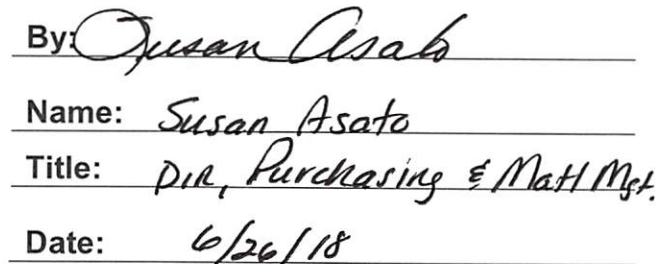 By: Susan Asato
Name: Susan Asato
Title: DIR, Purchasing & Matl Mgt.
Date: 6/26/18